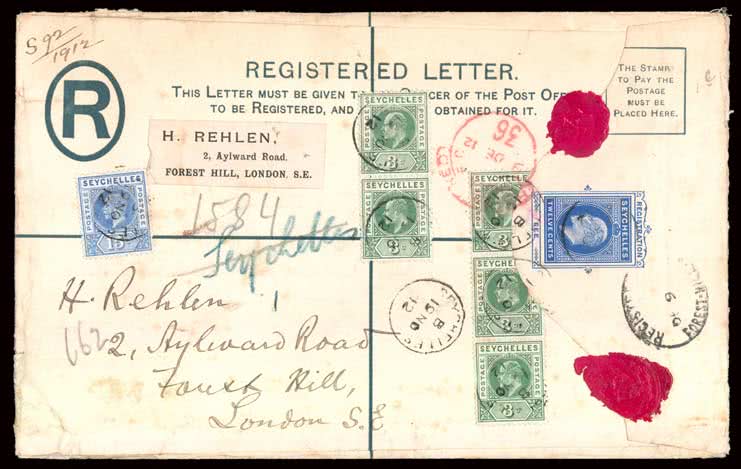 S 92
1912
R
REGISTERED LETTER.
THIS LETTER MUST BE GIVEN OFFICER OF THE POST OFF
TO BE REGISTERED, AND OBTAINED FOR IT.
THE STAMP
TO PAY THE
POSTAGE
MUST BE
PLACED HERE.
H. REHLEN,
2, Aylward Road.
FOREST HILL, LONDON. S.E.
SEYCHELLES
POSTAGE POSTAGE
3
SEYCHELLES
POSTAGE POSTAGE
3
SEYCHELLES
POSTAGE POSTAGE
15
SEYCHELLES
POSTAGE POSTAGE
SEYCHELLES
POSTAGE POSTAGE
SEYCHELLES
POSTAGE POSTAGE
3
REGISTRATION
SEYCHELLES
TWELVE CENTS
FEE
36
DE 12
1584
Seychelles
SEYCHELLES
B
19 NO
12
H. Rehlen
662
2, Aylward Road
Forest Hill,
London S.E